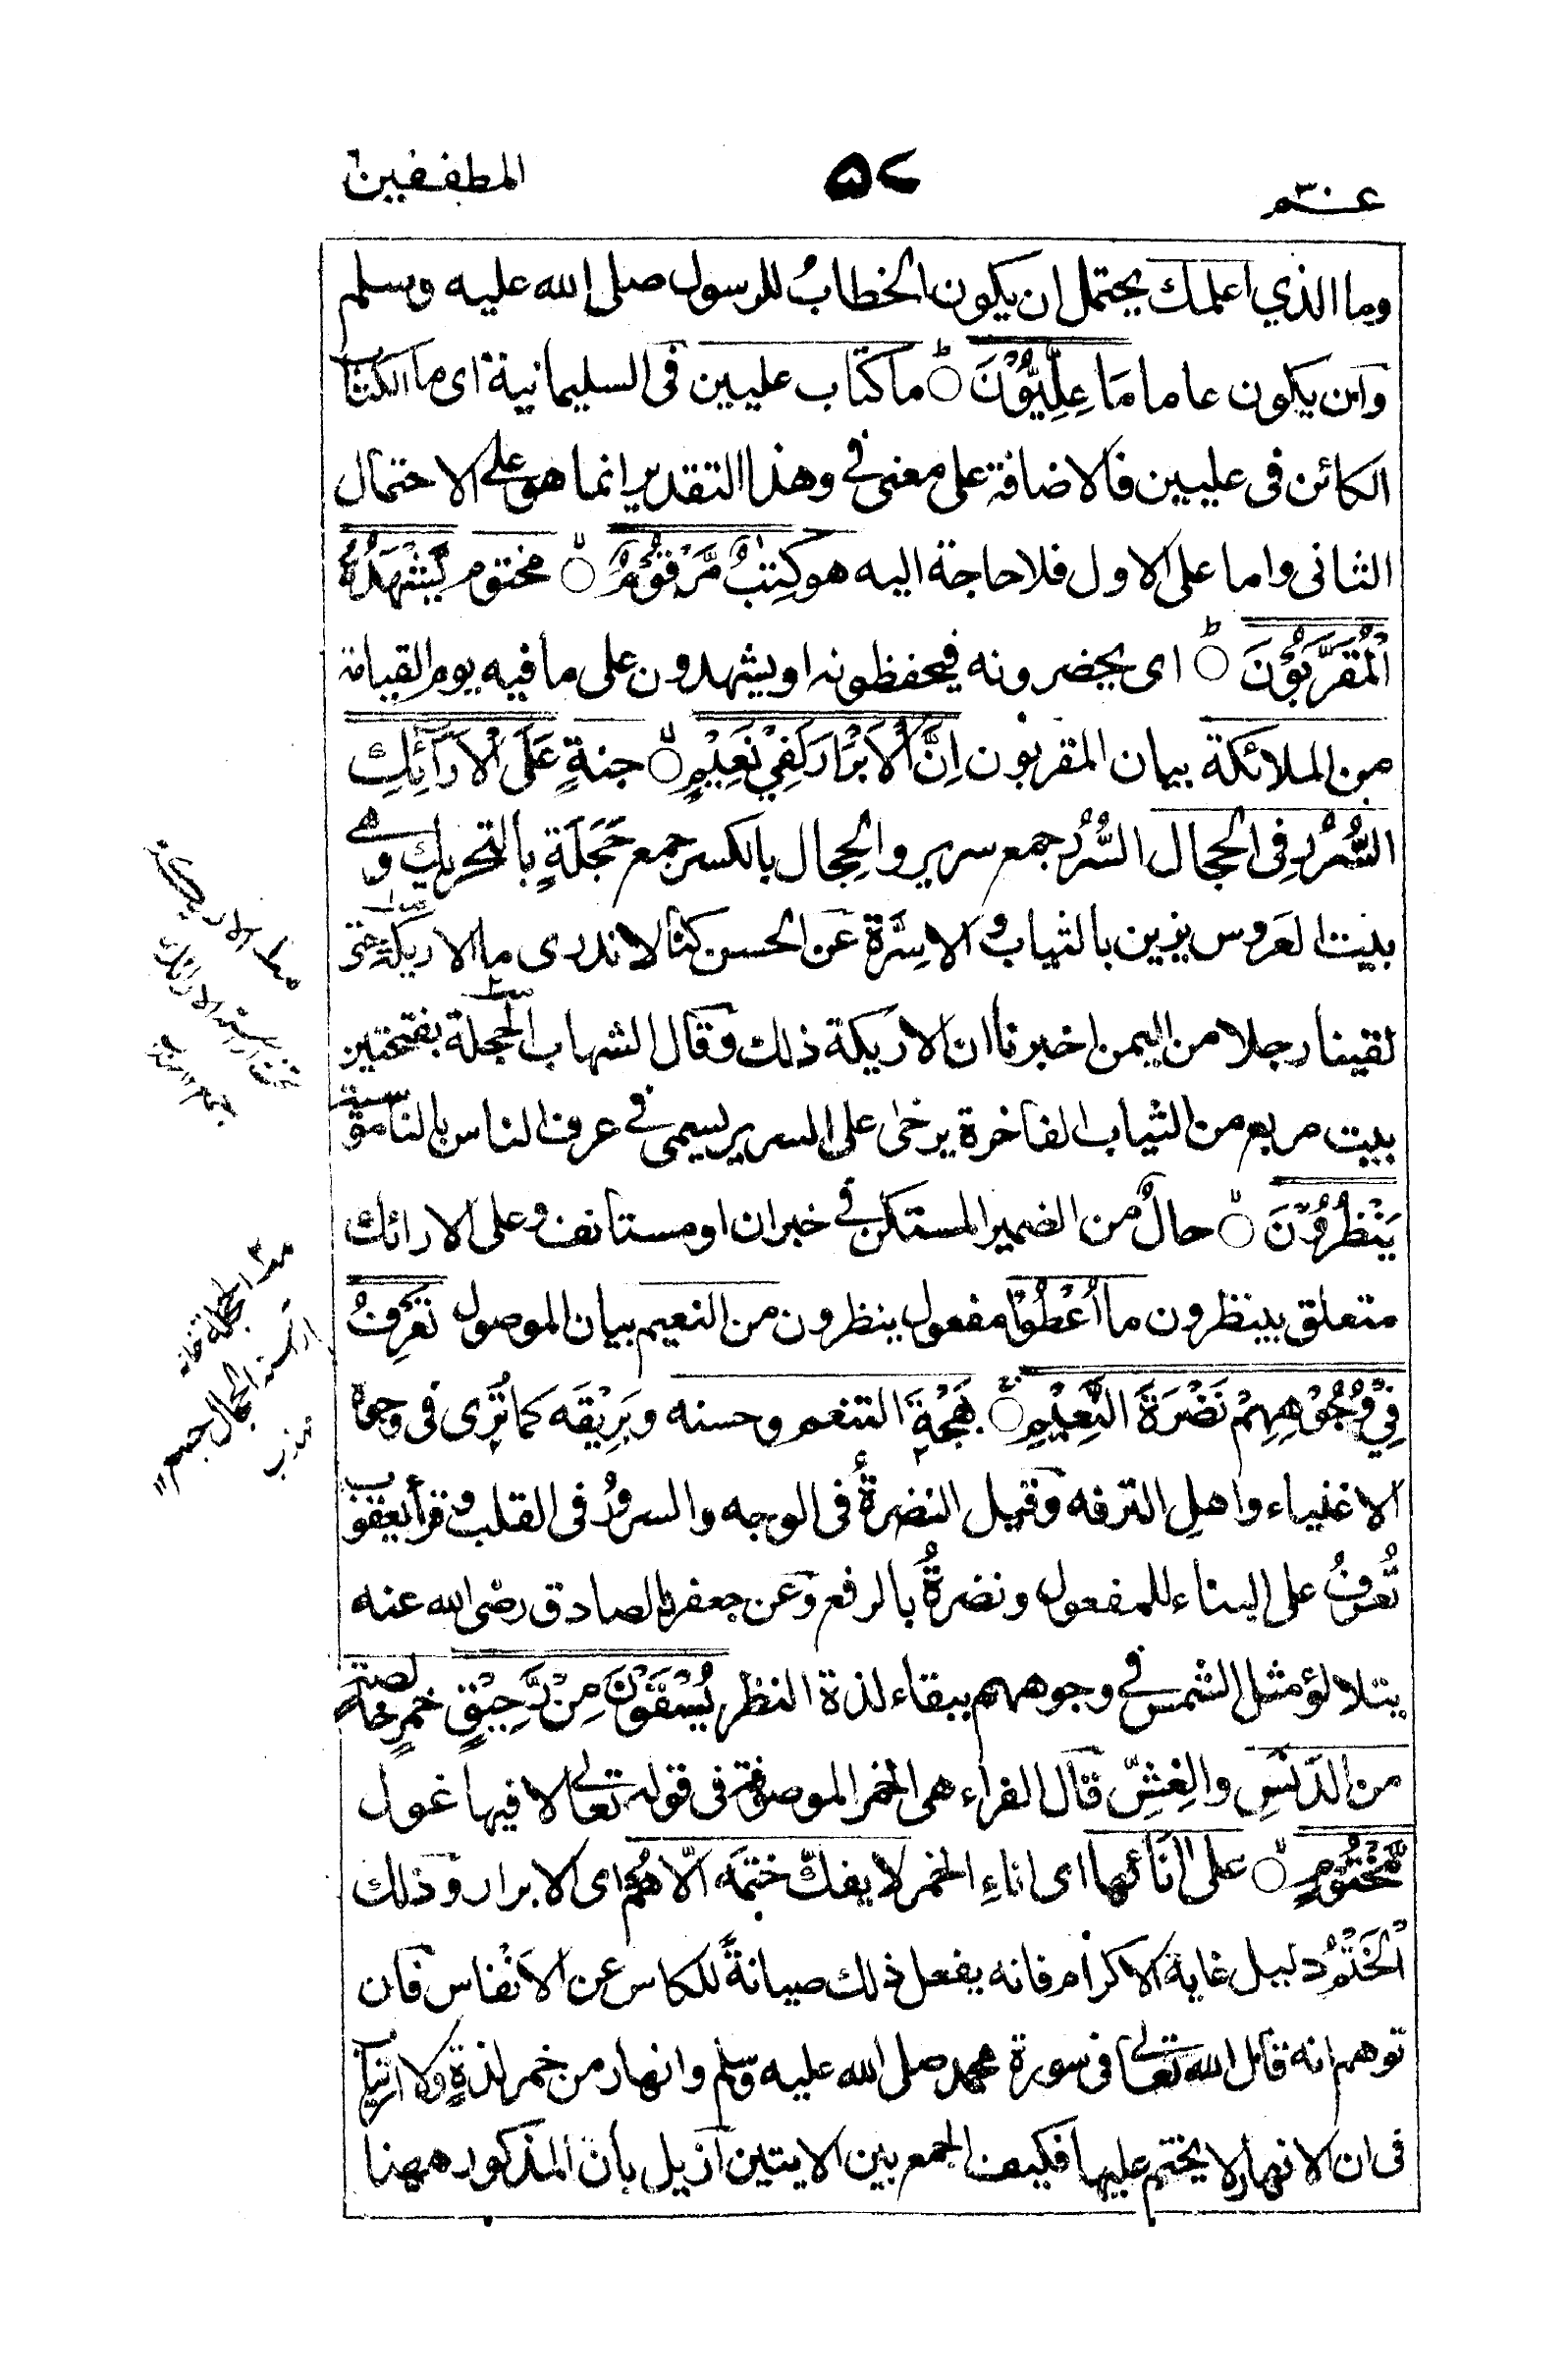 عـم
۵۷
المطففين
وما الذي اعلمك يحتمل ان يكون الخطابُ للرسول صلى الله عليه وسلم
وان يكون عاما مَا عِلِّيُّوْنَ ○ؕ ما كتاب عليين فى السليمانية اى ما الكتاب
الكائن فى عليين فالاضافة على معنى في وهذا التقدير انما هو على الاحتمال
الثانى واما على الاول فلا حاجة اليه هو كِتٰبٌ مَّرْقُوْمٌ ○ۙ مختوم يَّشْهَدُهُ
الْمُقَرَّبُوْنَ ○ؕ اى يحضرونه فيحفظونه او يشهدون على ما فيه يوم القيامة
من الملائكة بيان المقربون اِنَّ الْاَبْرَارَ لَفِيْ نَعِيْمٍ ○ۙ جنةٍ عَلَى الْاَرَآئِكِ
السُّرُرِ فِى الحِجال السُّرُر جمع سرير والحِجال بالكسر جمع حَجَلَةٍ بالتحريك وهى
بيت العَروس يزين بالثياب والاسِرَّة عن الحسن كنا لا ندرى ما الاريكة حتى
لقينا رجلا من اليمن اخبرنا ان الاريكة ذلك وقال الشهاب الحجلة بفتحتين
بيت مربع من الثياب الفاخرة يرخى على السرير يسمى في عرف الناس بالناموسية
يَنْظُرُوْنَ ○ۙ حالٌ من الضمير المستكن في خبر ان او مستأنف وعلى الارائك
متعلق بينظرون ما اُعْطُوْا مفعول ينظرون من النعيم بيان الموصول تَعْرِفُ
فِيْ وُجُوْهِهِمْ نَضْرَةَ النَّعِيْمِ ○ۚ بَهْجَةَ التنعم وحسنه وبَرِيْقَه كما تُرٰى فى وجوه
الاغنياء واهلِ الترفه وقيل النضرةُ فى الوجه والسرورُ فى القلب وقرأ يعقوب
تُعرَفُ على البناء للمفعول ونضرةُ بالرفع وعن جعفر الصادق رضى الله عنه
يتلالؤ مثل الشمس في وجوههم ببقاء لذة النظر يُسْقَوْنَ مِنْ رَّحِيْقٍ خمرٍ خالصة
من الدَنَسِ والغِشِّ قال الفراء هى الخمر الموصوفة فى قوله تعالى لا فيها غول
مَّخْتُوْمٍ ○ۙ على اِنَائها اى اناءِ الخمر لا يفكّ ختمَه الّا هُمْ اى الابرار وذلك
الْخَتْمُ دليل غاية الاكرام فانه يفعل ذلك صيانةً للكاس عن الاَنْفاس فان
توهم انه قال الله تعالى فى سورة محمد صلى الله عليه وسلم وانهار من خمر لذةٍ ولا ارتياب
فى ان الانهار لا يختم عليها فكيف الجمع بين الايتين ازيل بأن المذكور ههنا